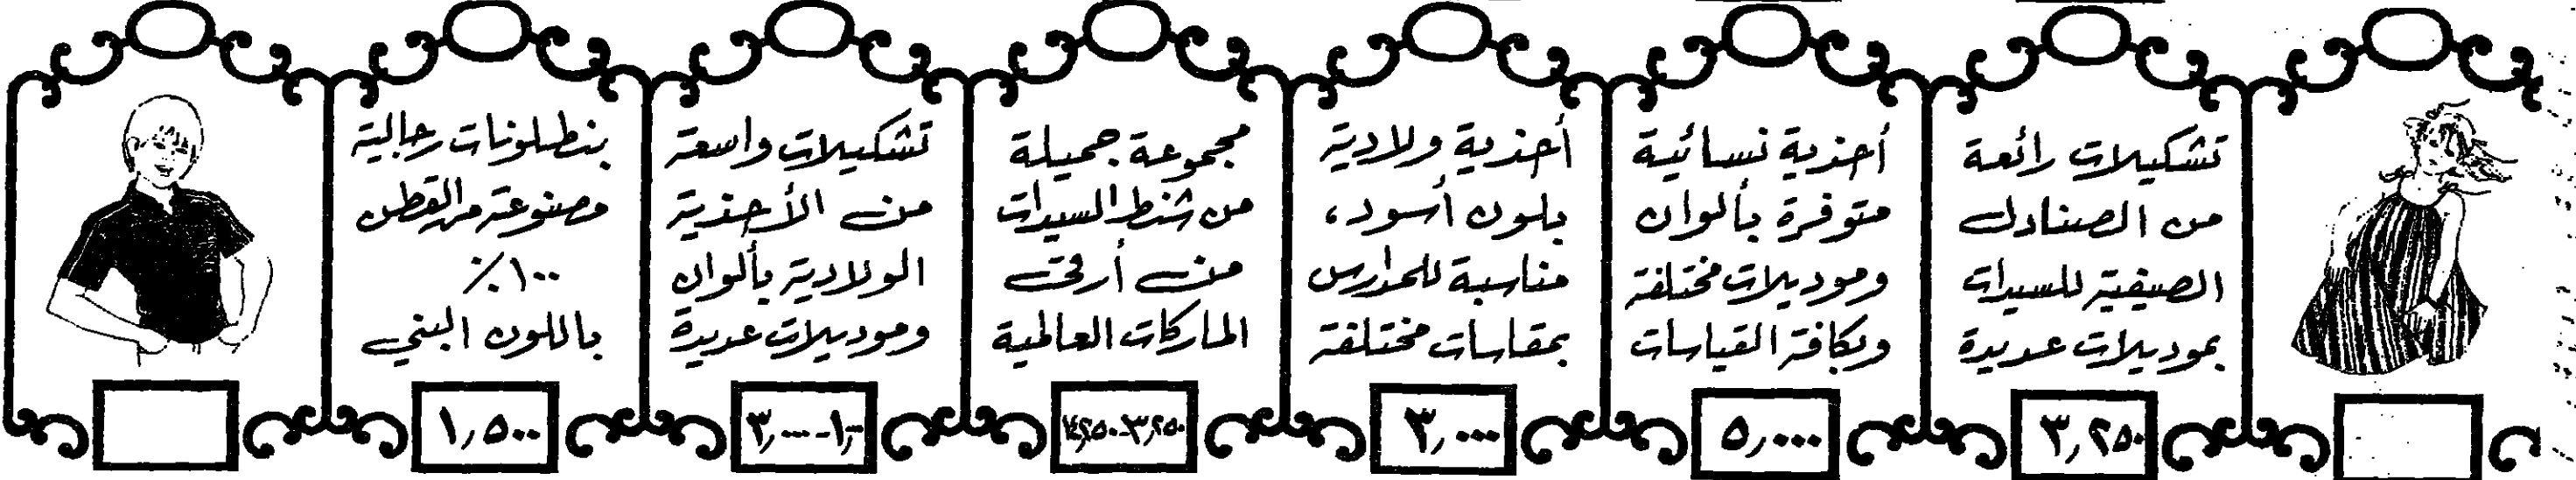 تشكيلات رائعة
من الصنادل
الصيفية للسيدات
بموديلات عديدة
٣,٢٥٠
أحذية نسائية
متوفرة بألوان
وموديلات مختلفة
وبكافة القياسات
٥,٠٠٠
أحذية ولادية
بلون أسود،
مناسبة للمدارس
بمقاسات مختلفة
٣,٠٠٠
مجموعة جميلة
من شنط السيدات
من أرقى
الماركات العالمية
٣,٢٥٠-١٤,٢٥٠
تشكيلات واسعة
من الأحذية
الولادية بألوان
وموديلات عديدة
٣,٠٠٠
بنطلونات رجالية
مصنوعة من القطن
١٠٠٪
باللون البني
١,٥٠٠